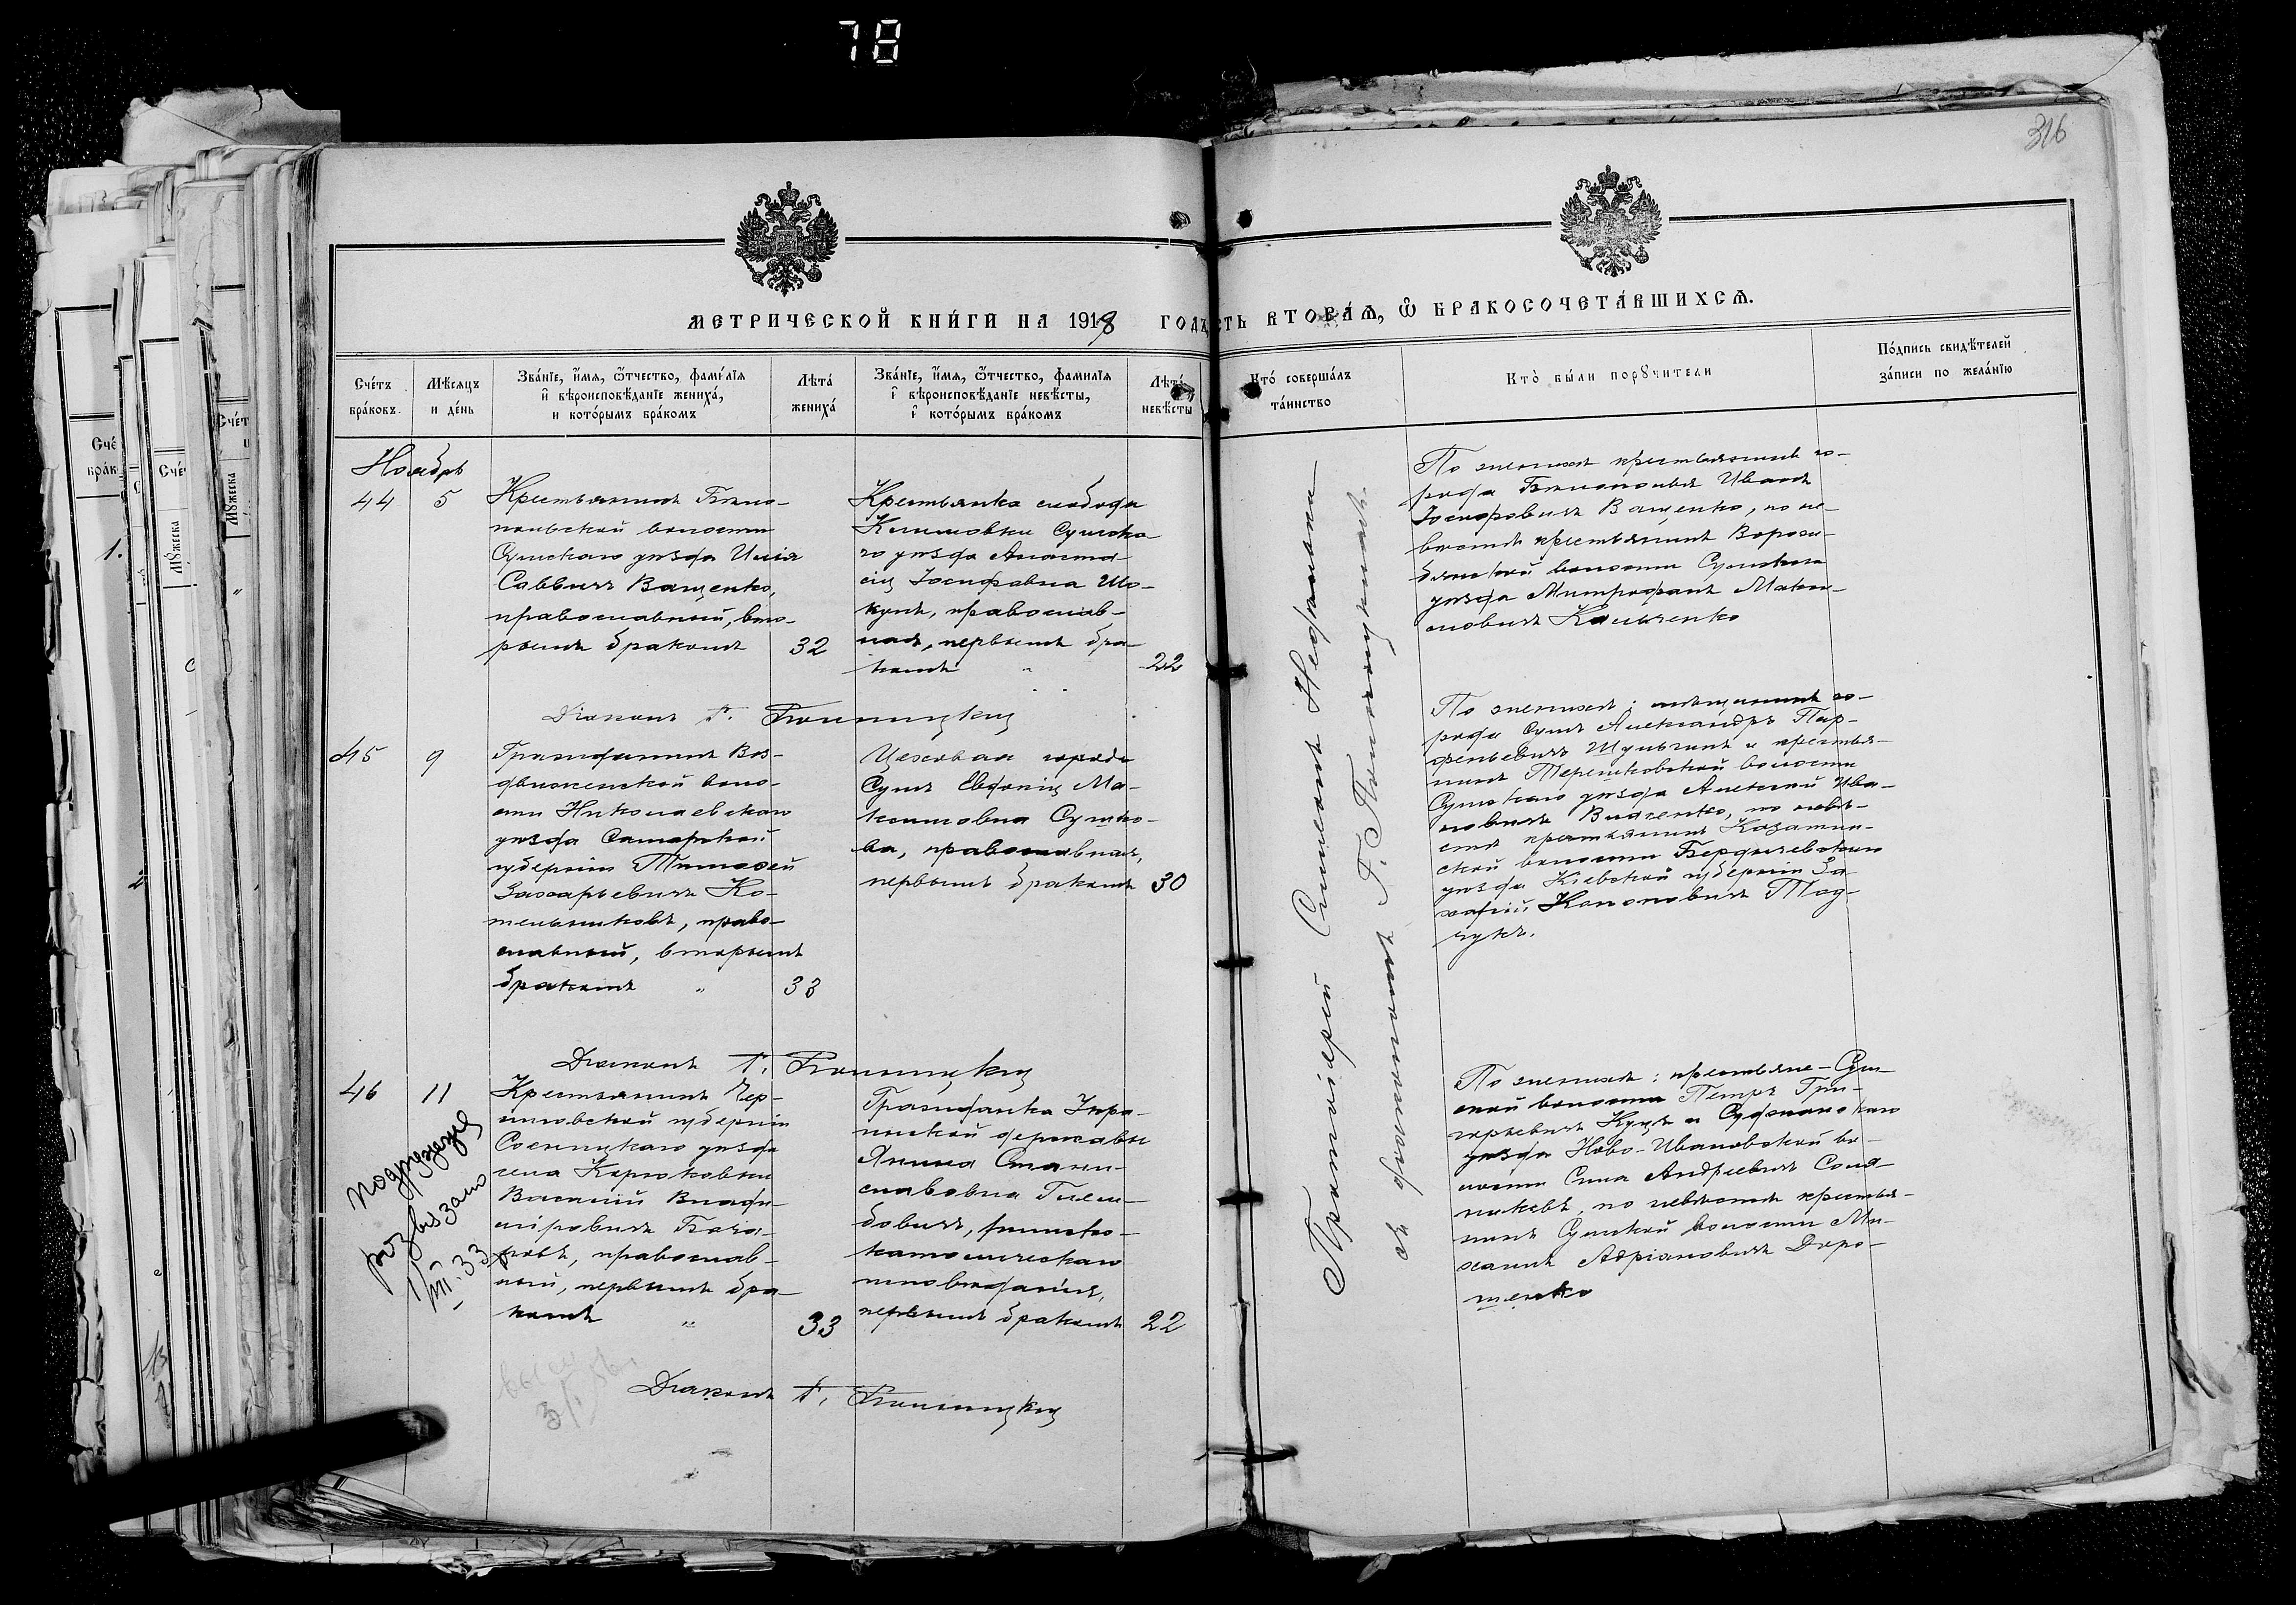 78
316
МЕТРИЧЕСКОЙ КНИ́ГИ НА 1918 ГОДЪ
СТЬ ВТОРА́Ѧ, Ѡ҆ БРАКОСОЧЕТА́ВШИХСѦ.
Сче́тъ бра́ковъ.
Мѣ́сяцъ и де́нь
Зва́нїе, и҆́мя, ѻ҆́тчество, фами́лїя и҆ вѣроисповѣ́данїе жениха́, и кото́рымъ бра́комъ
Лѣта́ жениха́
Зва́нїе, и҆́мя, ѻ҆́тчество, фами́лїя и҆ вѣроисповѣ́данїе невѣ́сты, и҆ кото́рымъ бра́комъ
Лѣта́ невѣ́сты
Кто́ соверша́лъ та́инство
Кто̀ бы́ли порꙋчи́тели
По́дпись свидѣ́телей за́писи по жела́нїю
Ноябрь
44
5
Крестьянинъ Бѣло-
польской волости
Сумскаго уѣзда Илія
Саввичъ Ващенко,
православный, вто-
рымъ бракомъ
32
Крестьянка слободы
Климовки Сумска-
го уѣзда Анаста-
сія Іосифовна Шо-
купъ, православ-
ная, первымъ бра-
комъ "
22
По женихѣ крестьянинъ го-
рода Бѣлополья Иванъ
Іосифовичъ Ващенко, по не-
вѣстѣ крестьянинъ Ворож-
бянской волости Сумскаго
уѣзда Митрофанъ Макси-
мовичъ Кальченко
Діаконъ
45
9
Гражданинъ Воз-
движенской воло-
сти Николаевскаго
уѣзда Самарской
губерніи Тимофей
Захарьевичъ Ко-
тельниковъ, право-
славный, вторымъ
бракомъ "
33
Цеховая города
Сумъ Евфимія Ма-
ксимовна Сушко-
ва, православная,
первымъ бракомъ
30
По женихѣ: мѣщанинъ го-
рода Сумъ Александръ Пар-
феньевичъ Шульгинъ и крестья-
нинъ Терешковской волости
Сумскаго уѣзда Алексѣй Ива-
новичъ Видченко, по невѣ-
стѣ крестьянинъ Казатин-
ской волости Бердичевскаго
уѣзда Кіевской губерніи За-
харій Кононовичъ Тод-
чукъ.
Діаконъ
46
11
Крестьянинъ Чер-
ниговской губерніи
Сосницкаго уѣзда
села Корюковки
Василій Влади-
міровичъ
православ-
ный, первымъ бра-
комъ "
33
Гражданка Укра-
инской державы
Янина Стани-
славовна Гилем-
бовичъ, римско-
католическаго
исповѣданія,
первымъ бракомъ
22
По женихѣ: крестьяне - Сум-
ской волости Петръ Гри-
горьевичъ Куцъ и Суджанскаго
уѣзда Ново-Ивановской во-
лости Сила Андреевичъ Солд-
никовъ, по невѣстѣ крестья-
нинъ Сумской волости Ми-
хаилъ Адріановичъ Доро-
шенко
Діаконъ
подружжя
розвязано
Протоіерей Симеонъ
съ діакономъ